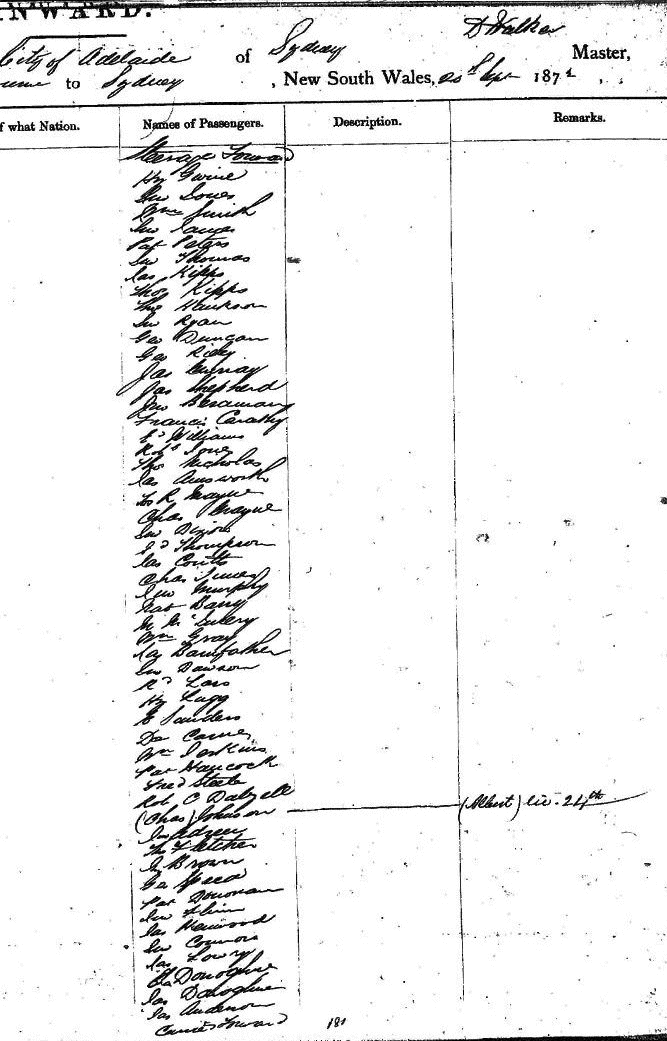 INWARD.
City of Adelaide of Sydney D Walker Master,
to Sydney , New South Wales, Sept 187
f what Nation. Names of Passengers. Description. Remarks.
Steerage Forward
Hy
Jno Jones
Wm Smith
Jno James
Pat Peters
Jno Thomas
Jas Kipps
Thos Kipps
Thos
Jno Ryan
Geo Duncan
Geo Riley
Jas Murray
Jas Shepherd
Jno
Francis
Ed Williams
Robt Jones
Thos Nicholas
Jas Ainsworth
Jos R Mayne
Chas Mayne
Jno Dixon
Ed Thompson
Jas Coutts
Chas
Jno Murphy
Nat Barry
Wm Gray
Jas Bainfather
Jno Dawson
Rd
Hy Lugg
E Saunders
Da
Wm Perkins
Pat Hancock
Fred Steele
Rob C Dalzell
(Chas) Johnson (Albert) liv. 24th
Jno
Thos Fletcher
Brown
Geo Speed
Pat Donovan
Jno
Jas
Jno Connors
Jas Lowry
Donoghue
Jas Donoghue
Jas Anderson
Carried Forward 181